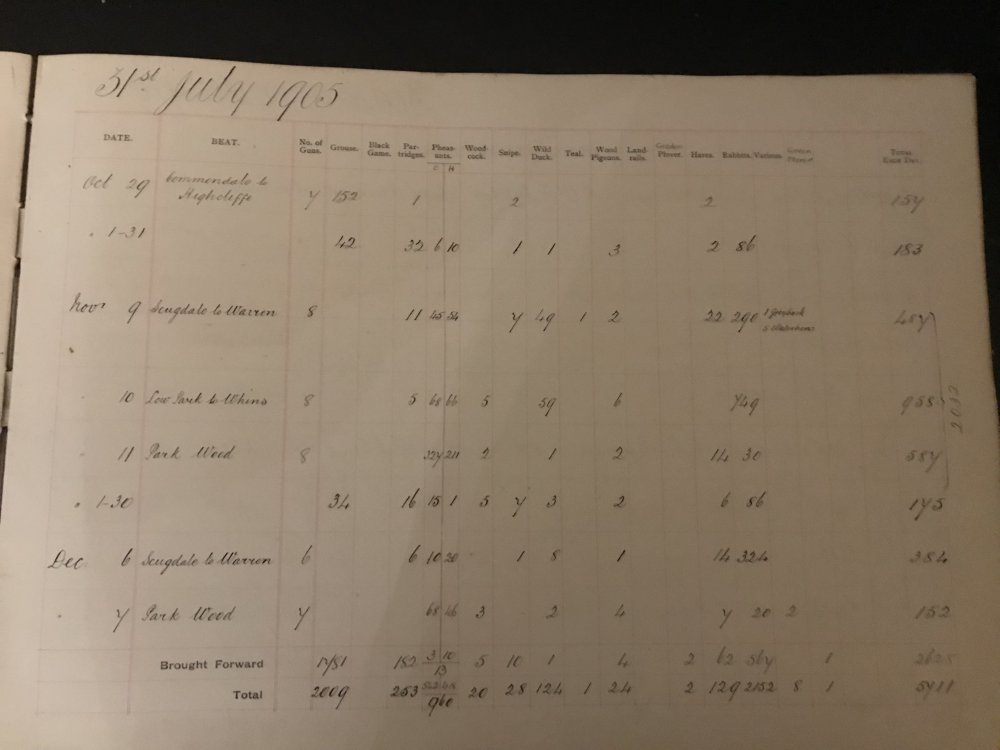 31st July 1905
DATE. BEAT. No. of Guns. Grouse. Black Game. Par- tridges. Pheas- ants. Wood- cock. Snipe. Wild Duck. Teal. Wood Pigeons. Land- rails. Golden Plover. Hares. Rabbits. Various. Green Plover Total Each Day.
C H
Oct 29 Commondale to Highcliffe 7 152 1 2 2 157
" 1-31 42 32 6 10 1 1 3 2 86 183
Nov 9 Scugdale to Warren 8 11 45 54 7 49 1 2 22 290 487
10 Low Park to Whins 8 5 68 66 5 59 6 749 958
" 11 Park Wood 8 327 211 2 1 2 14 30 587
2032
" 1-30 34 16 15 1 5 7 3 2 6 86 175
Dec 6 Scugdale to Warren 6 6 10 20 1 8 1 14 324 384
" 7 Park Wood 7 68 46 3 2 4 7 20 2 152
Brought Forward 1781 182 3 10 13 5 10 1 4 2 62 567 1 2628
Total 2009 253 960 20 28 124 1 24 2 129 2152 8 1 5711